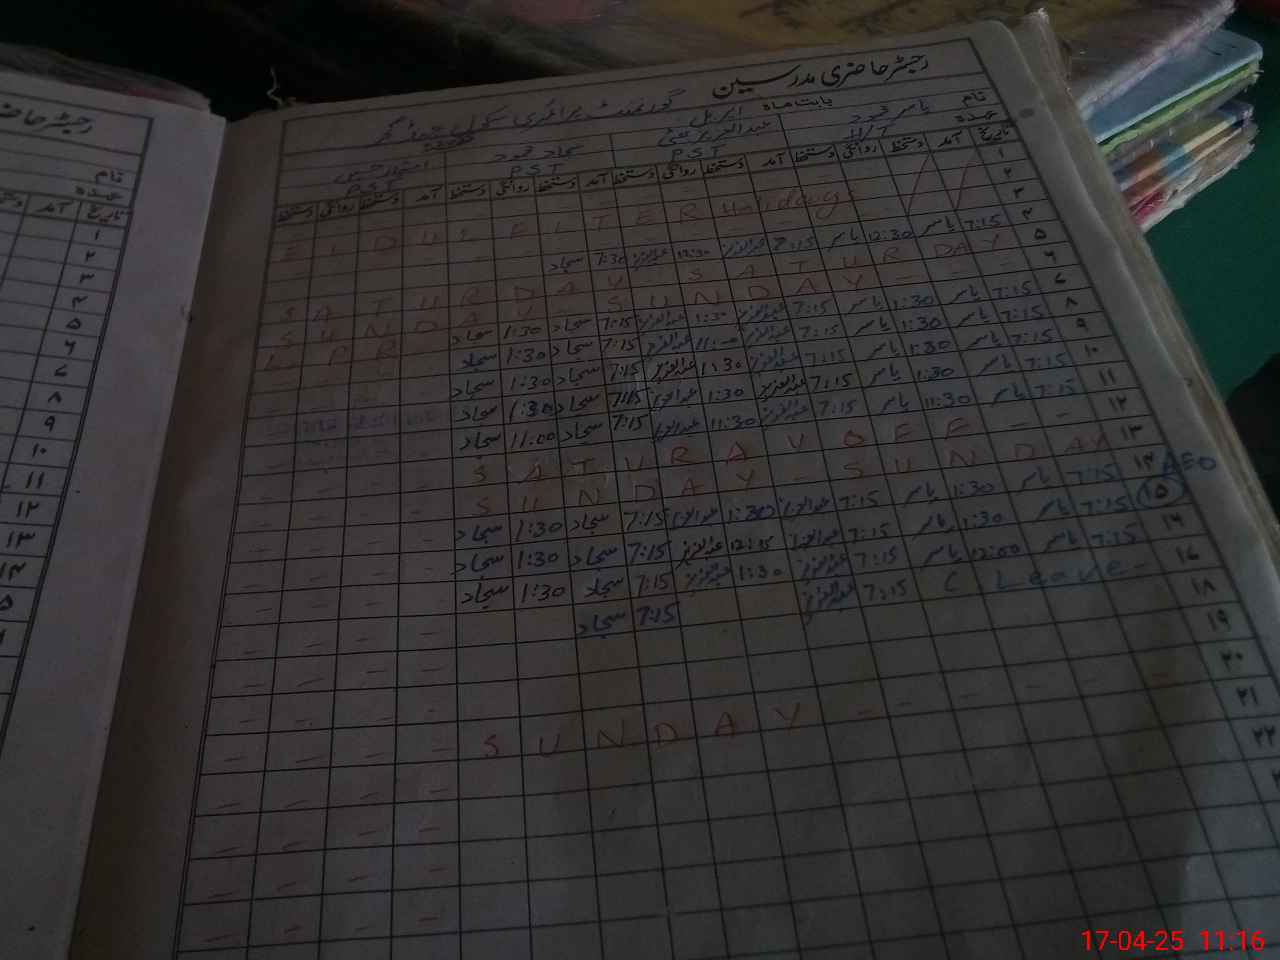 رجسٹر حاضری مدرسین
گورنمنٹ پرائمری سکول
بابت ماہ اپریل
نام یاسر محمود عبدالعزیز سجاد محمود
عہدہ PST PST PST
تاریخ آمد دستخط روانگی دستخط آمد دستخط روانگی دستخط آمد دستخط روانگی دستخط آمد دستخط روانگی دستخط
۱
۲ EIDUL FITER Holidays
۳
۴ 7:15 یاسر 12:30 یاسر 7:15 عبدالعزیز 12:30 عبدالعزیز 7:30 سجاد
۵ SATURDAY SATURDAY
۶ SUNDAY - SUNDAY
۷ 7:15 یاسر 1:30 یاسر 7:15 عبدالعزیز 1:30 عبدالعزیز 7:15 سجاد 1:30 سجاد
۸ 7:15 یاسر 1:30 یاسر 7:15 عبدالعزیز 11:00 عبدالعزیز 7:15 سجاد 1:30 سجاد
۹ 7:15 یاسر 1:30 یاسر 7:15 عبدالعزیز 1:30 عبدالعزیز 7:15 سجاد 1:30 سجاد
۱۰ 7:15 یاسر 1:30 یاسر 7:15 عبدالعزیز 1:30 عبدالعزیز 7:15 سجاد 1:30 سجاد
۱۱ 7:15 یاسر 11:30 یاسر 7:15 عبدالعزیز 11:30 عبدالعزیز 7:15 سجاد 11:00 سجاد
۱۲ SATURAY OFF
۱۳ SUNDAY - SUNDAY
۱۴ 7:15 یاسر 1:30 یاسر 7:15 عبدالعزیز 1:30 عبدالعزیز 7:15 سجاد 1:30 سجاد
AEO
۱۵ 7:15 یاسر 1:30 یاسر 7:15 عبدالعزیز 12:15 عبدالعزیز 7:15 سجاد 1:30 سجاد
۱۶ 7:15 یاسر 12:00 یاسر 7:15 عبدالعزیز 1:30 عبدالعزیز 7:15 سجاد 1:30 سجاد
۱۷ C Leave 7:15 عبدالعزیز 7:15 سجاد
۱۸
۱۹
۲۰ SUNDAY
۲۱
۲۲
رجسٹر حا
نام
عہدہ
تاریخ آمد دستخط
۱
۲
۳
۴
۵
۶
۷
۸
۹
۱۰
۱۱
۱۲
۱۳
۱۴
17-04-25 11:16